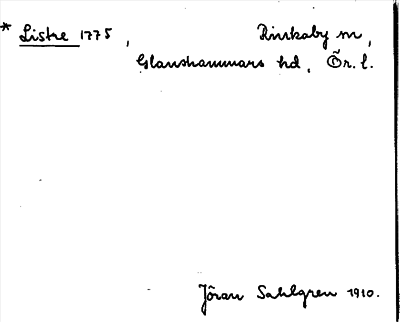 * Listre 1775, Rinkaby sn,
Glanshammars hd, Ör. l.
Jöran Sahlgren 1910.